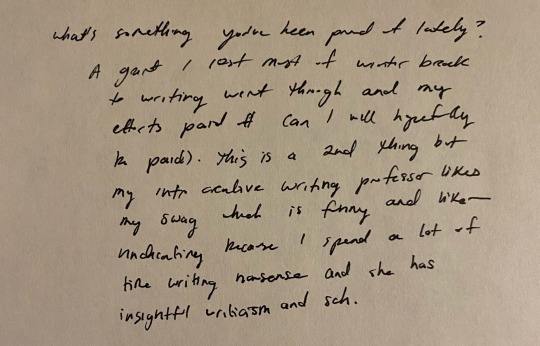 what's something you've been proud of lately?
A grant I lost most of winter break
to writing went through and my
efforts paid off (an I will hopefully
be paid). This is a 2nd thing but
my intro creative writing professor likes
my swag which is funny and like
vindicating because I spend a lot of
time writing nonsense and she has
insightful criticism and such.